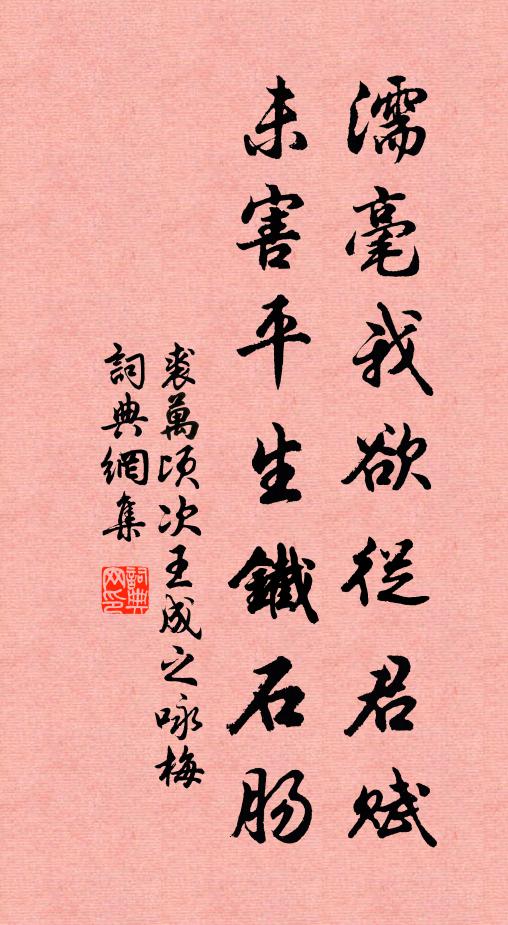 濡毫我欲從君賦
未害平生鐵石腸
裘萬頃次王成之咏梅
詞典網集
詞典网印